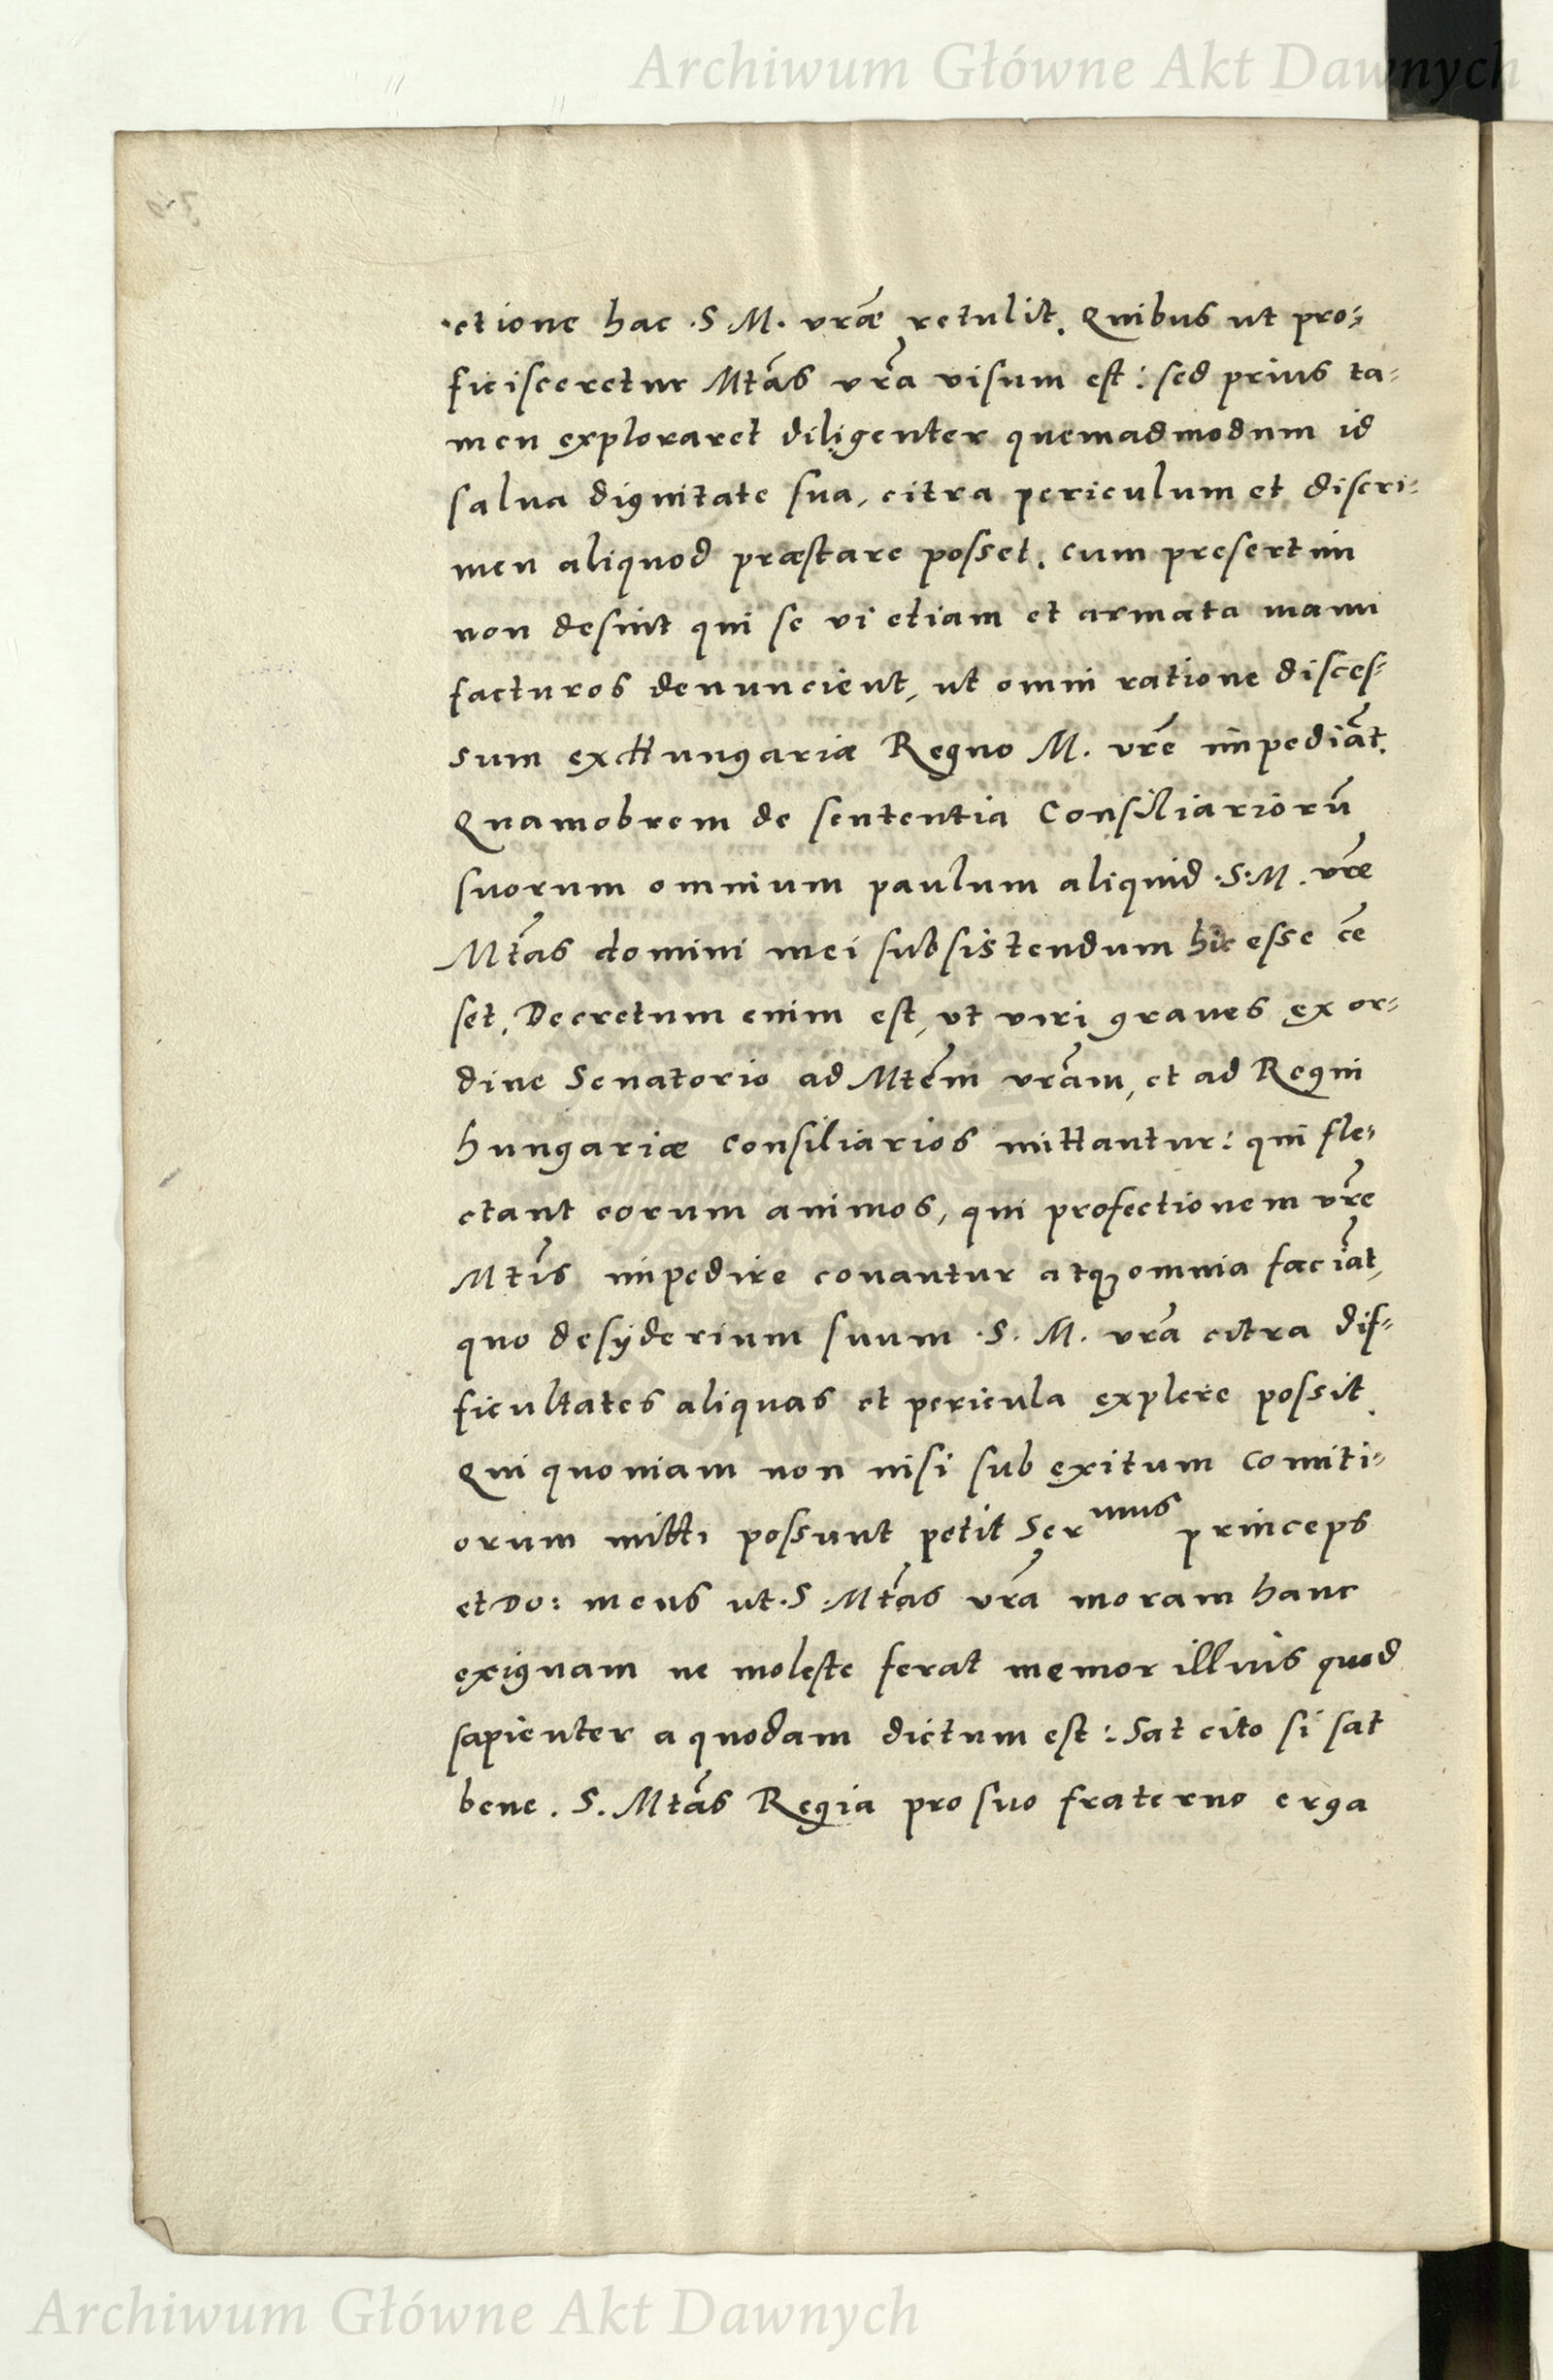 Archiwum Główne Akt Dawnych
ctione hac S. M. vrãe retulit. Quibus ut pro=
ficisceretur Mtãs vrã visum est: sed prius ta=
men exploraret diligenter quemadmodum id
salua dignitate sua, citra periculum et discri=
men aliquod præstare posset. cum presertim
non desint qui se vi etiam et armata manu
facturos denuncient, ut omni ratione disces=
sum ex Hungariæ Regno M. vrẽ impediãt.
Quamobrem de sententia Consiliariorũ
suorum omnium paulum aliquid S. M. vrẽ
Mtãs domini mei subsistendum hic esse cẽ
set. Decretum enim est, ut viri graues ex or=
dine Senatorio ad Mtẽm vrãm, et ad Regni
hungariæ consiliarios mittantur: qui fle=
ctant eorum animos, qui profectionem vrẽ
Mtĩs impedire conantur atq; omnia faciãt,
quo desyderium suum S. M. vrã citra dif=
ficultates aliquas et pericula explere possit.
Qui quoniam non nisi sub exitum comiti=
orum mitti possunt petit Ser^mus princeps
et Do: meus ut S. Mtãs vrã moram hanc
exiguam ne moleste ferat memor illius quod
sapienter a quodam dictum est: Sat cito si sat
bene. S. Mtãs Regia pro suo fraterno erga
Archiwum Główne Akt Dawnych